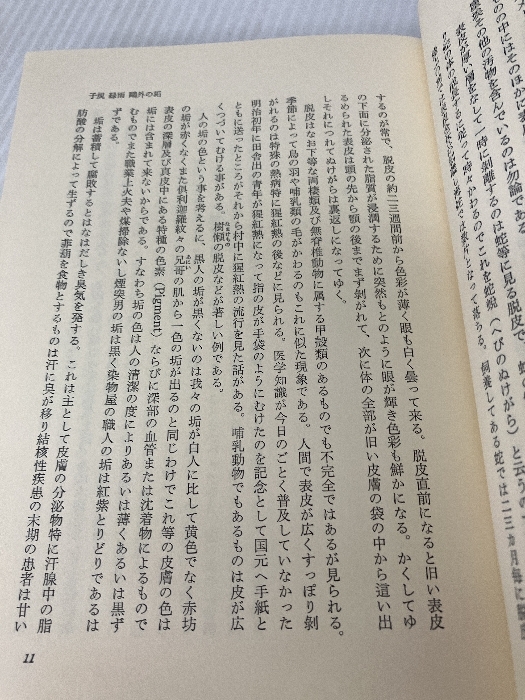 ものの中にはそのほかに表
座炎その他の汚物を含んでいるのは勿論である。
表皮が厚い層をなして一時に剥離するのは蛇等に見る脱皮で、蛇
時にかわるのでこれを蛇蛻（へびのぬけがら）と云う
飼養してある蛇では二三カ月毎に
するのが常で、脱皮の約二三週間前から色彩が薄く眼も白く曇って来る。脱皮直前になると旧い表皮
の下面に分泌された脂質が浸潤するために突然もとのように眼が輝き色彩も鮮かになる。かくしてゆ
るめられた表皮は頭の先から顎の後まで剥がれて、次に体の全部が旧い皮膚の袋の中から這い出
しそれにつれてぬけがらは裏返しになってゆく。
脱皮はなお下等な両棲類及び無脊椎動物に属する甲殻類のあるものでも不完全ではあるが見られる。
季節によって鳥の羽や哺乳類の毛がかわるのもこれに似た現象である。人間で表皮が広くすっぽり剝
がれるのは特殊の熱病特に猩紅熱の後などに見られる。医学知識が今日のごとく普及していなかった
明治初年に田舎出の青年が猩紅熱になって指の皮が手袋のようにむけたのを記念として国元へ手紙と
ともに送ったところがそれから村中に猩紅熱の流行を見た話がある。哺乳動物でもあるものは皮が広
くつづいてむける事がある。樹懶の脱皮などが著しい例である。
人の垢の色という事を考えるに、黒人の垢が黒くないのは我々の垢が白人に比して黄色でなく赤坊
の垢が赤くなくまた倶利迦羅紋々の兄哥の肌から一色の垢が出るのと同じわけでこれ等の皮膚の色は
表皮の深層及び真皮にある特種の色素（Pigment）ならびに深部の血管または沈着物によるもので
垢には含まれて来ないからである。すなわち垢の色は人の清潔の度によりあるいは薄くあるいは黒ず
むものでまた職業上火夫や煤掃除ないし煙突男の垢は黒く染物屋の職人の垢は紅紫とりどりであるは
ずである。
垢は蓄積して腐敗するとはなはだしき臭気を発する。これは主として皮膚の分泌物特に汗腺中の脂
肪酸の分解によって生ずるので韮葫を食物とするものは汗に臭が移り結核性疾患の末期の患者は甘い
子規 緑雨 鷗外の垢
11